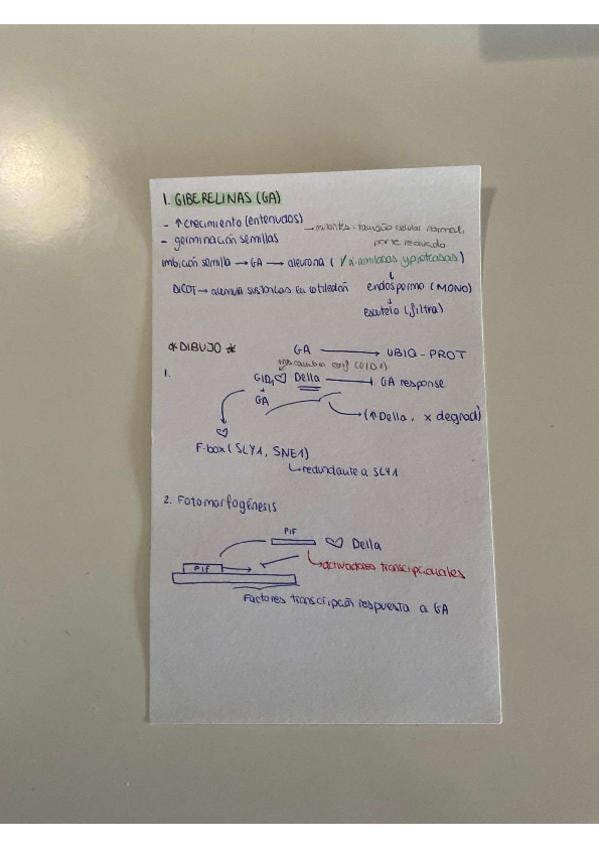 1. GIBERELINAS (GA)
- ↑ crecimiento (entrenudos)
→ mutantes: tamaño celular normal,
- germinación semillas
porte reducido
imbición semilla → GA → aleurona ( α-amilasas y proteasas)
DICOT → acumula sustancias en cotiledón
endospermo (MONO)
escutelo (filtra)
* DIBUJO *
GA → UBIQ-PROT
cambio conf (GID1)
1.
GID1 ♡ Della ⊣ GA response
GA
→ (↑Della, x degrad)
♡
F-box (SLY1, SNE1)
↳ redundante a SLY1
2. Fotomorfogénesis
PIF
♡ Della
↳ activadores transcripcionales
PIF
Factores transcripción respuesta a GA